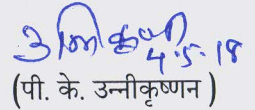 उन्नीकृष्णन
4.5.18
(पी. के. उन्नीकृष्णन )